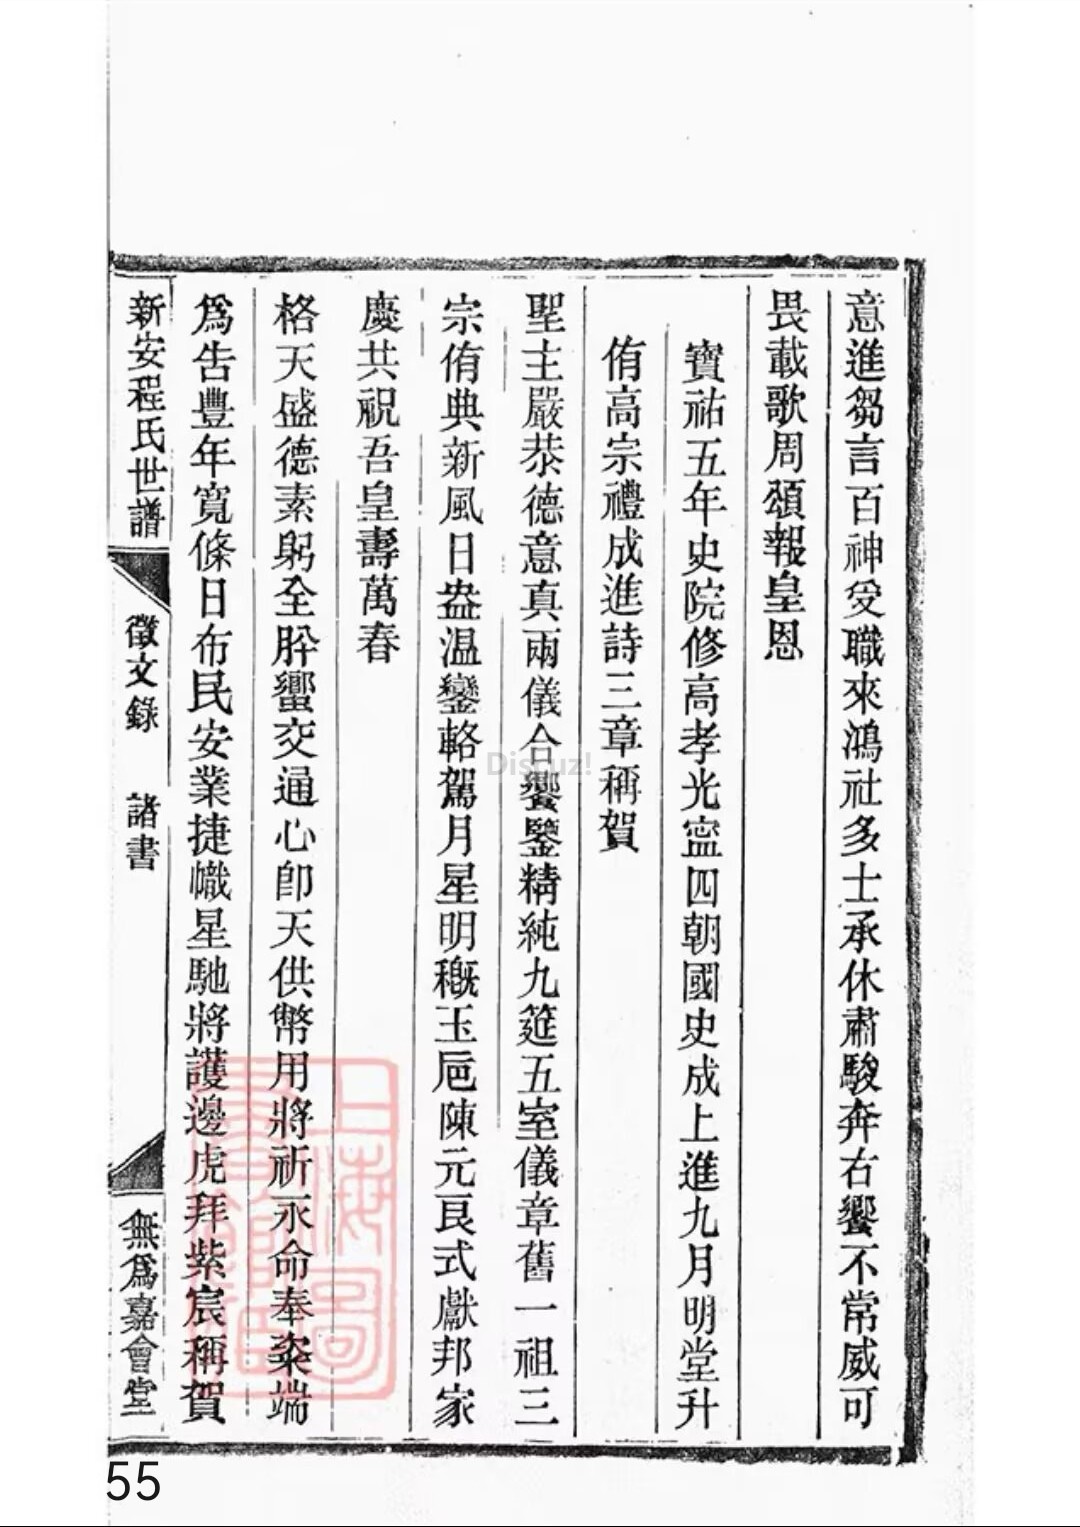 意進芻言百神受職來鴻社多士承休肅駿奔右饗不常威可
畏載歌周頌報皇恩
寶祐五年史院修高孝光寍四朝國史成上進九月明堂升
侑高宗禮成進詩三章稱賀
聖主嚴恭德意真兩儀合饗鑒精純九筵五室儀章舊一祖三
宗侑典新風日盎温鑾輅駕月星明穊玉巵陳元良式獻邦家
慶共祝吾皇壽萬春
格天盛德素躬全肸蠁交通心卽天供幣用將祈永命奉粢端
爲告豐年寬條日布民安業捷幟星馳將護邊虎拜紫宸稱賀
新安程氏世譜
徵文錄 諸書
無爲嘉會堂
上海圖
書館藏
Discuz!
55